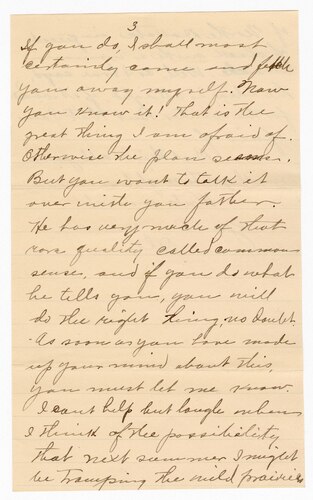 3
If you do, I shall most
certainly come and fetch
you away myself. Now
you know it! That is the
great thing I am afraid of.
Otherwise the plan seems.
But you want to talk it
over with you father.
He has very much of that
rare quality called common
sense, and if you do what
he tells you, you will
do the right thing, no doubt.
As soon as you have made
up your mind about this,
you must let me know.
I cant help but laugh when
I think of the possibility
that next summer I might
be tramping the wild prairies